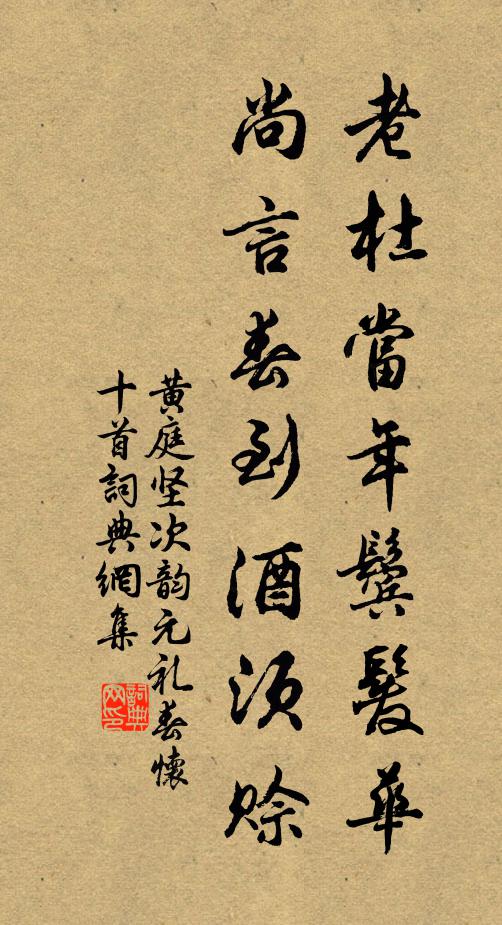 老杜當年鬢髮華
尚言春到酒須賒
黄庭坚次韵元礼春懷
十首詞典網集
詞典网印